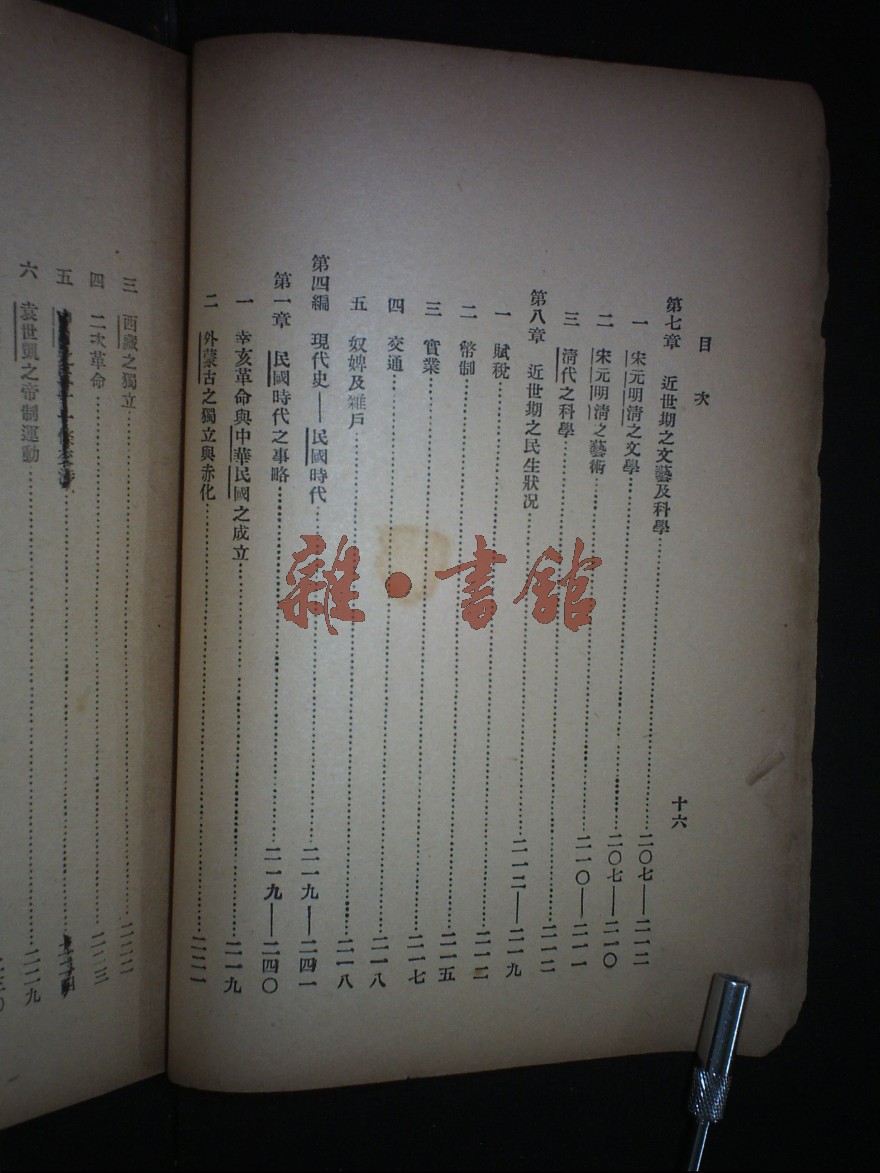 目次
十六
第七章 近世期之文藝及科學……二〇七——二一二
一 宋元明清之文學……二〇七——二一〇
二 宋元明清之藝術……二一〇——二一一
三 清代之科學……二一二
第八章 近世期之民生狀况……二一二——二一九
一 賦稅……二一二
二 幣制……二一五
三 實業……二一七
四 交通……二一八
五 奴婢及雜戶……二一八
第四編 現代史——民國時代……二一九——二四一
第一章 民國時代之事略……二一九——二四〇
一 幸亥革命與中華民國之成立……二一九
二 外蒙古之獨立與赤化……二二一
三 西藏之獨立……二二二
四 二次革命……二二三
五
六 袁世凱之帝制運動……二二九
雜·書館